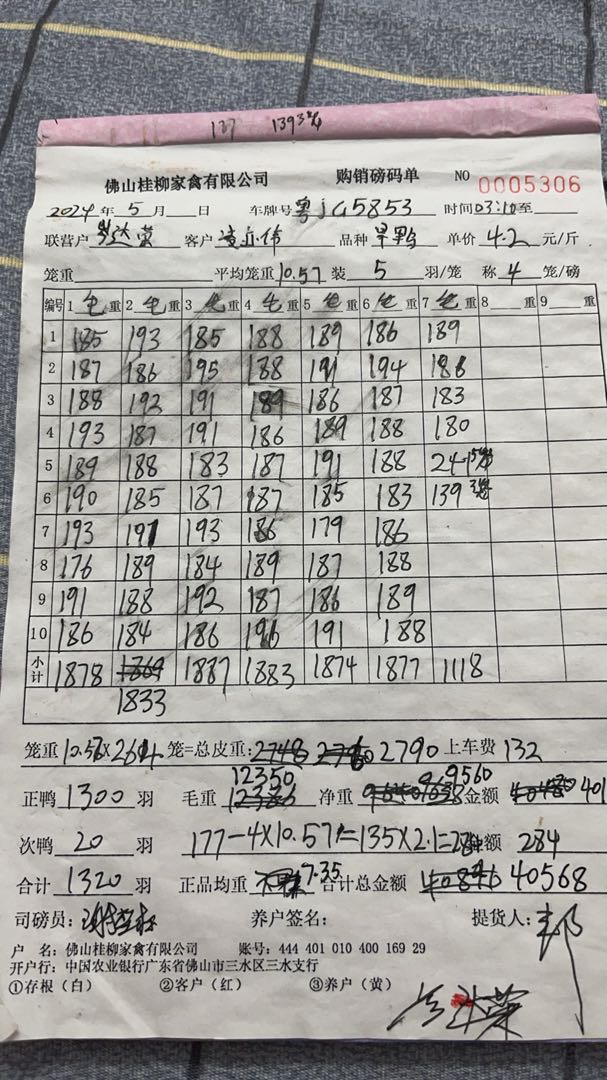 137 1393
佛山桂柳家禽有限公司 购销磅码单 NO 0005306
2024年 5 月 日 车牌号 粤JG5853 时间 03:10至
联营户 达荣 客户 品种 单价 4.2 元/斤
笼重 平均笼重 10.57 装 5 羽/笼 称 4 笼/磅
编号 1 毛重 2 毛重 3 毛重 4 毛重 5 毛重 6 毛重 7 毛重 8 重 9 重
1 185 193 185 188 189 186 189
2 187 186 195 188 191 194 186
3 188 192 191 189 186 187 183
4 193 187 191 186 189 188 180
5 189 188 183 187 191 188 241
6 190 185 187 187 185 183 139
7 193 191 193 186 179 186
8 176 189 184 189 187 188
9 191 188 192 187 186 189
10 186 184 186 196 191 188
小计 1878 1869 1887 1883 1874 1877 1118
1833
笼重 10.57×264 笼=总皮重: 2748 2790 上车费 132
12350 9560
正鸭 1300 羽 毛重 净重 金额 401
次鸭 20 羽 177-4×10.57=135×2.1=284 额 284
合计 1320 羽 正品均重 7.35 合计总金额 40568
司磅员: 养户签名: 提货人: 邦
户 名: 佛山桂柳家禽有限公司 账号: 444 401 010 400 169 29
开户行: 中国农业银行广东省佛山市三水区三水支行
①存根（白） ②客户（红） ③养户（黄）
达荣